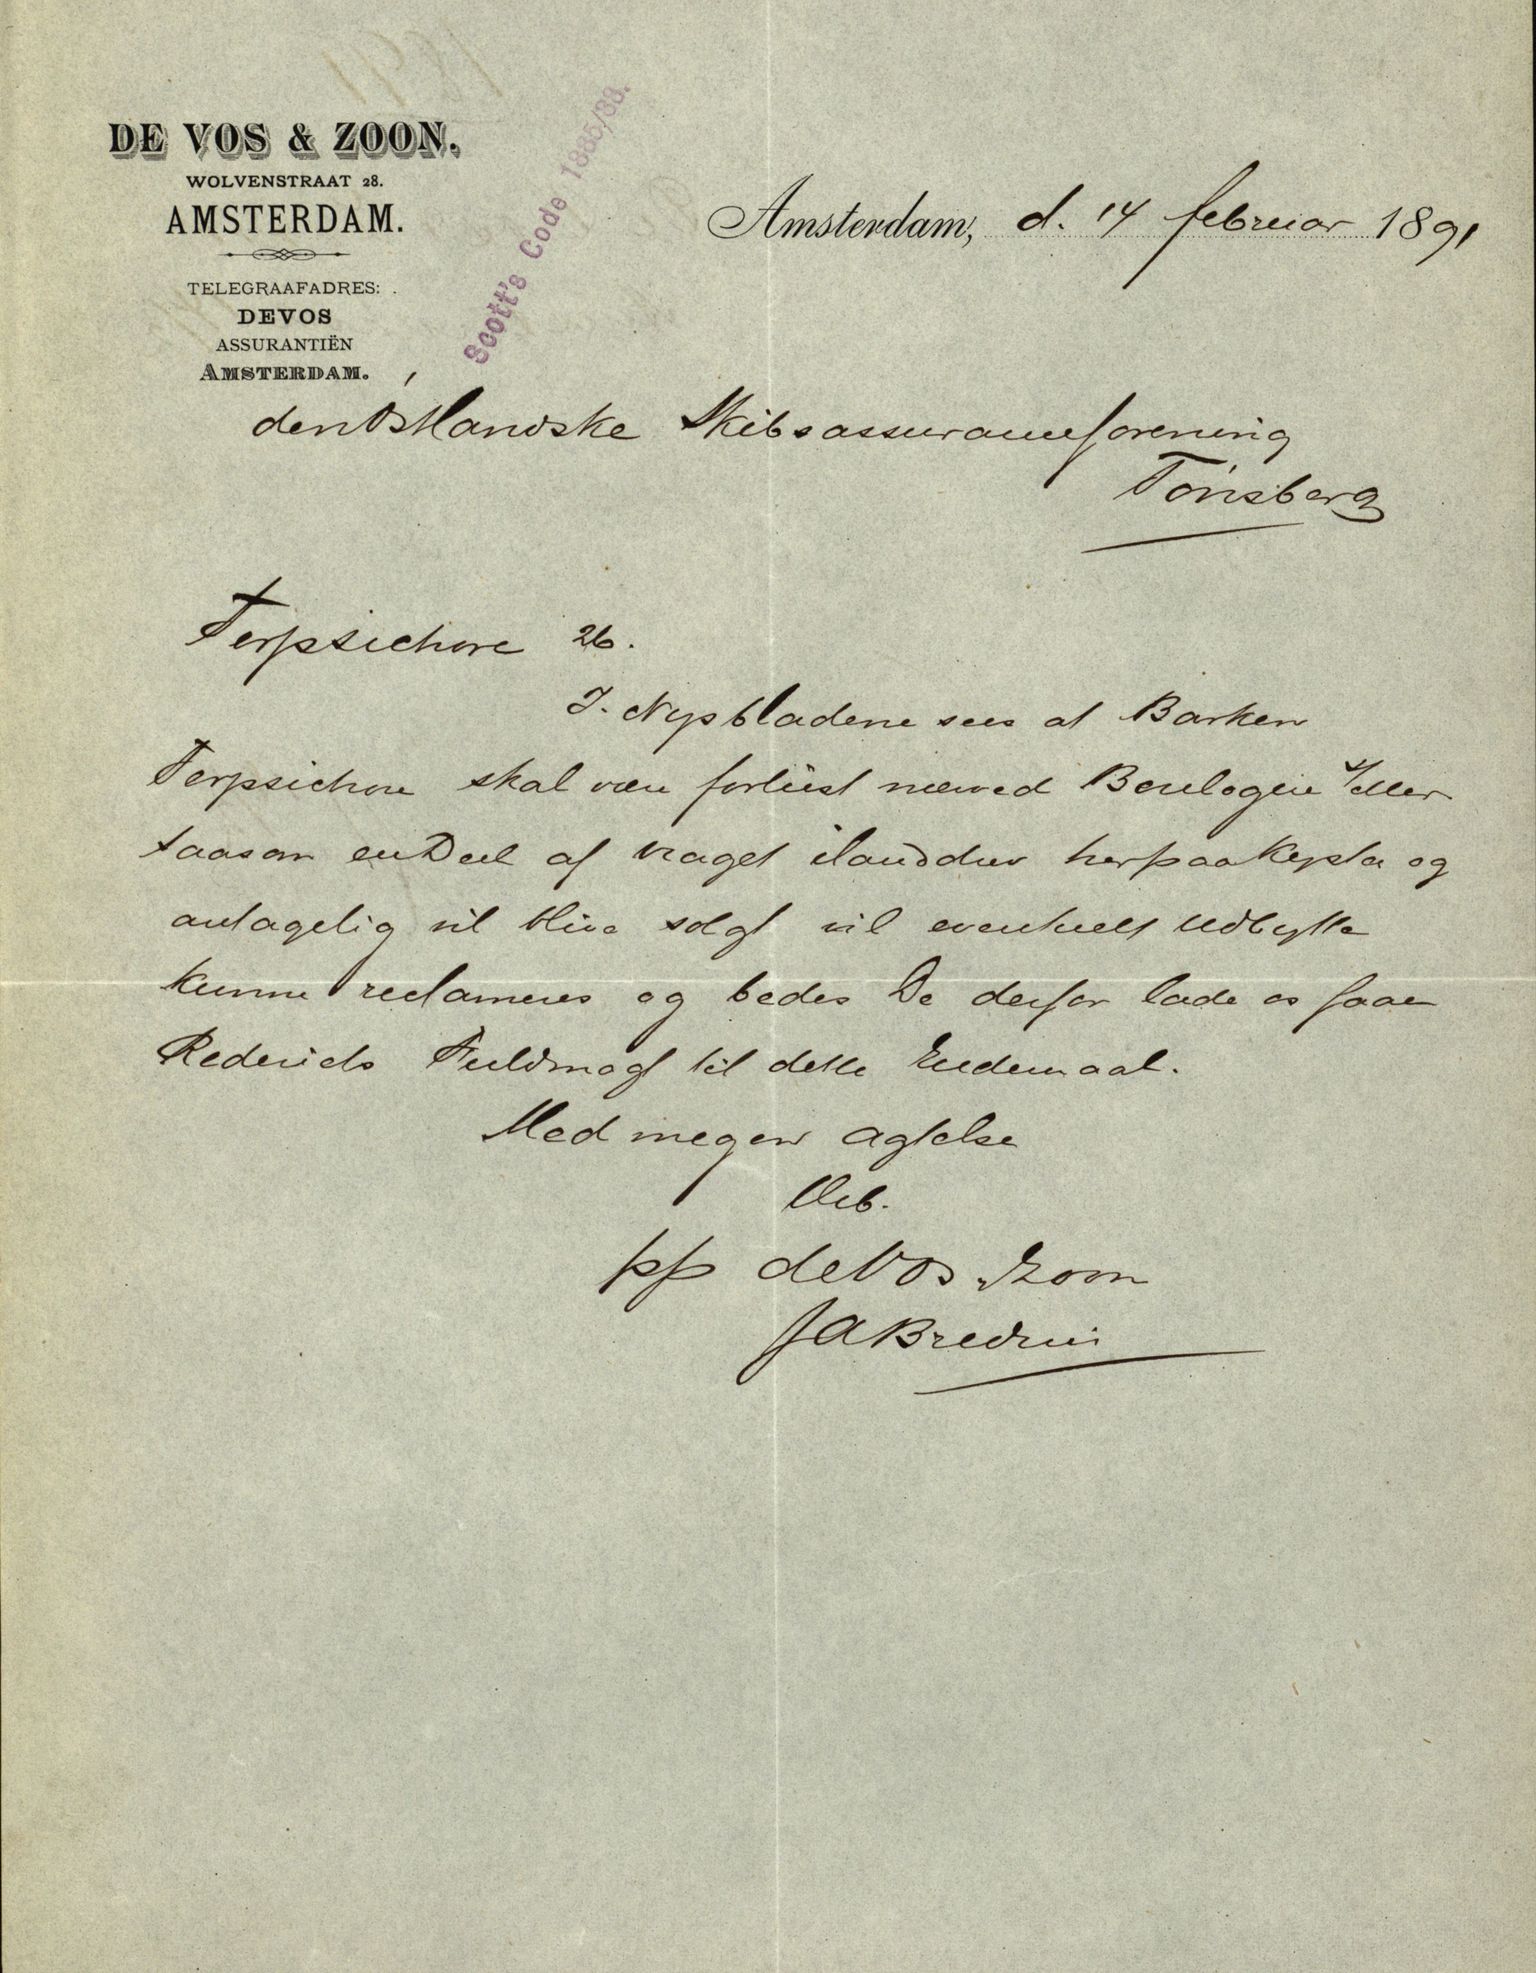 DE VOS & ZOON.
WOLVENSTRAAT 28.
AMSTERDAM.
TELEGRAAFADRES:
DEVOS
ASSURANTIËN
AMSTERDAM.
Scott's Code 1885/88.
Amsterdam, d. 14 februar 1891
den Østlandske Skibsassuranceforening
Tönsberg
Terpsichore 26.
I. Nysbladene sees at Barken
Terpsichore skal være forliist nærved Boulogne
saasom en Deel af vraget ilanddrev her paa Kysten og
antagelig vil blive solgt vil eventuelt Udbytte
kunne reclameres og bedes De derfor lade os faae
Rederiets Fuldmagt til dette Endemaal.
Med megen agtelse
Deb.
pp de Vos & Zoon
JABredius